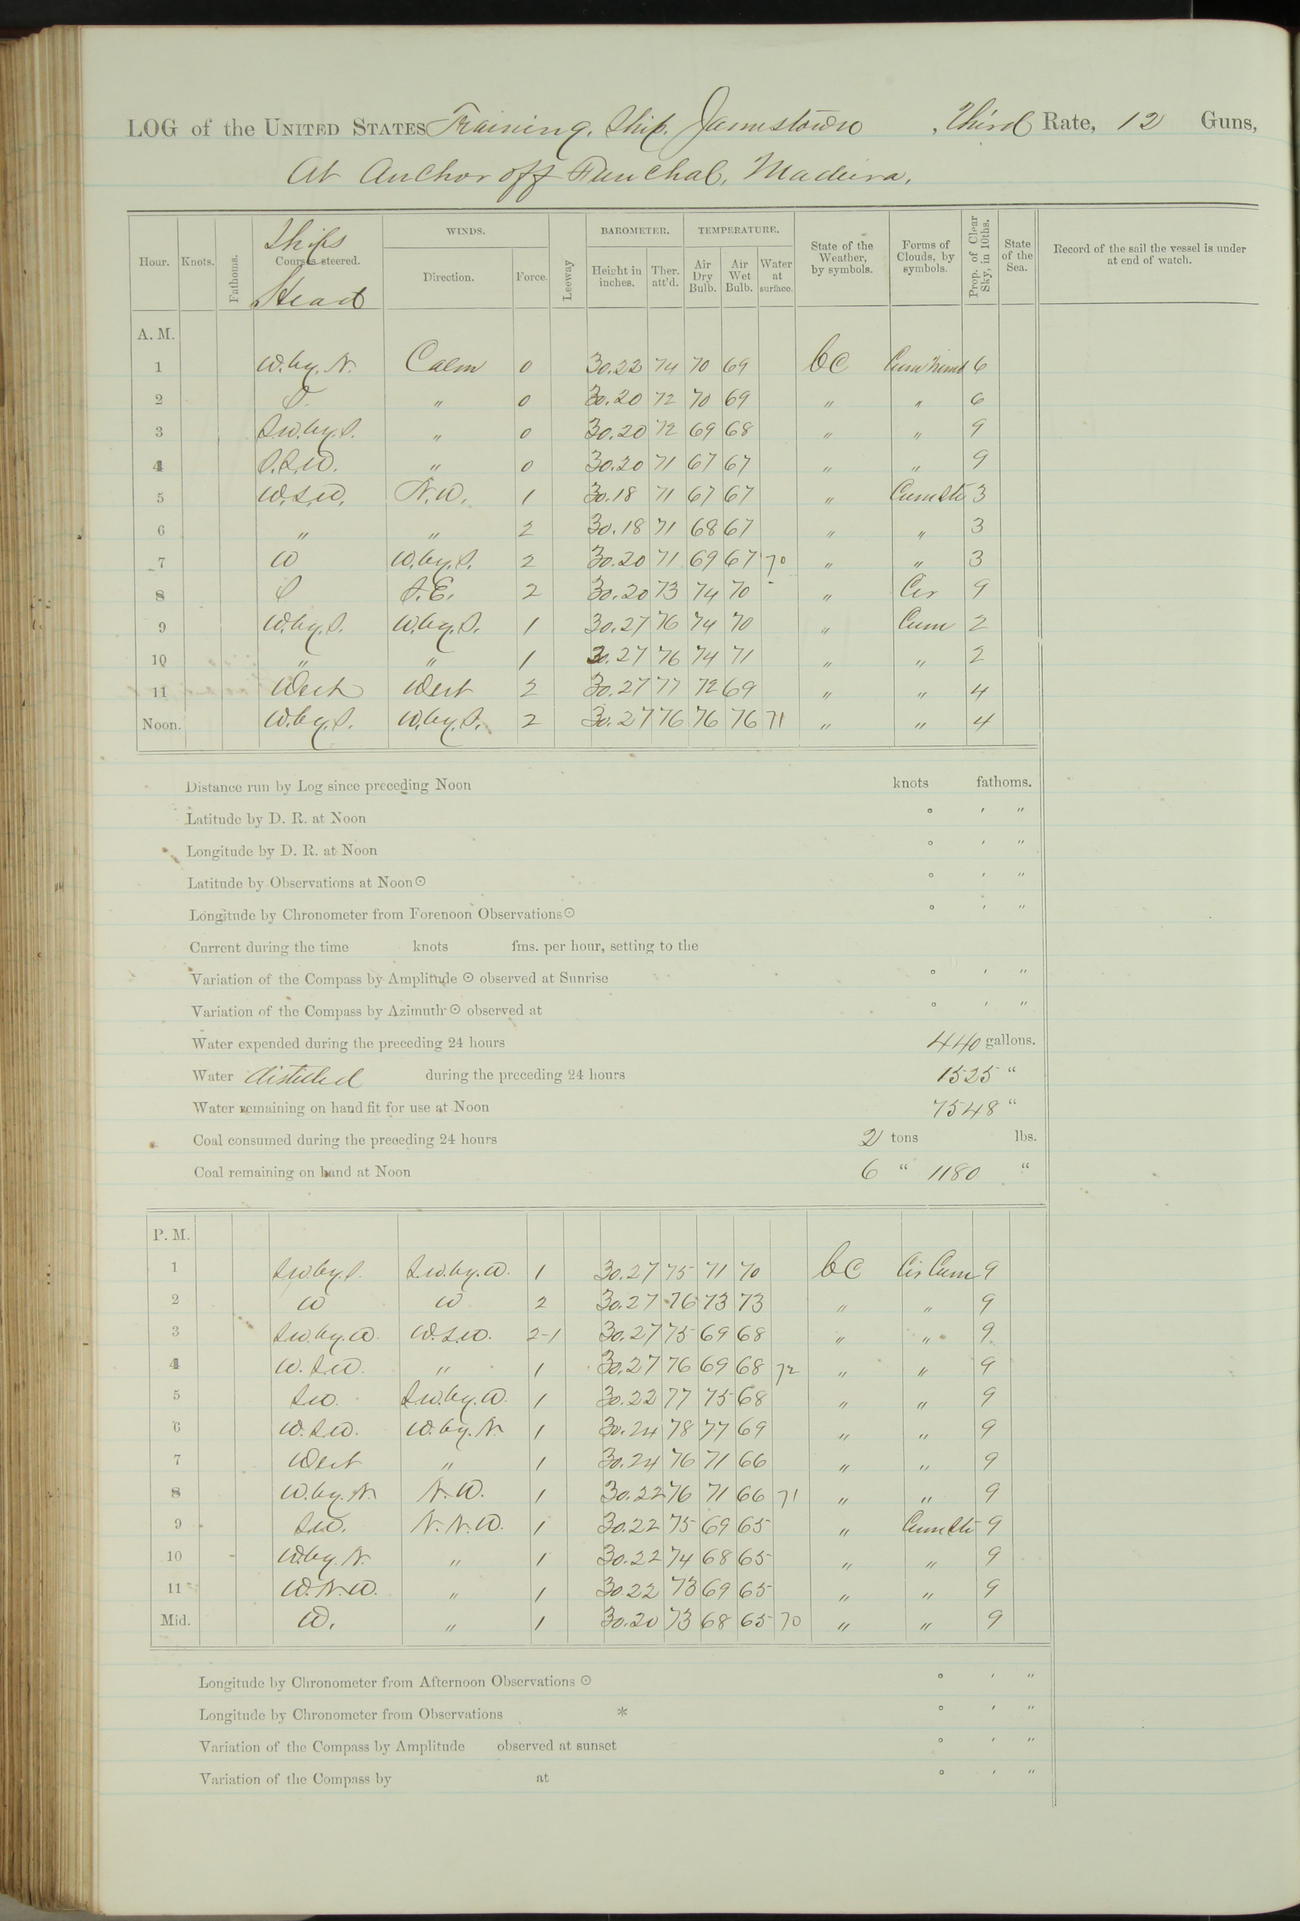 LOG of the UNITED STATES Training Ship Jamestown, Third Rate, 12 Guns,
At Anchor off Funchal, Madeira,
Hour. Knots. Fathoms. Ships Courses steered. Head WINDS. Direction. Force. Leeway BAROMETER. Height in inches. Ther. att'd. TEMPERATURE. Air Dry Bulb. Air Wet Bulb. Water at surface. State of the Weather, by symbols. Forms of Clouds, by symbols. Prop. of Clear Sky, in 10ths. State of the Sea. Record of the sail the vessel is under at end of watch.
A. M.
1 W.by.N. Calm 0 30.22 74 70 69 bc Cum Nimb 6
2 S. " 0 30.20 72 70 69 " " 6
3 SW.by.S. " 0 30.20 72 69 68 " " 9
4 S.S.W. " 0 30.20 71 67 67 " " 9
5 W.S.W. N.W. 1 30.18 71 67 67 " Cum Str 3
6 " " 2 30.18 71 68 67 " " 3
7 W W.by.S. 2 30.20 71 69 67 70 " " 3
8 S S.E. 2 30.20 73 74 70 " Cir 9
9 W.by.S. W.by.S. 1 30.27 76 74 70 " Cum 2
10 " " 1 30.27 76 74 71 " " 2
11 West West 2 30.27 77 72 69 " " 4
Noon. W.by.S. W.by.S. 2 30.27 76 76 76 71 " " 4
Distance run by Log since preceding Noon knots fathoms.
Latitude by D. R. at Noon ° ' "
Longitude by D. R. at Noon ° ' "
Latitude by Observations at Noon ☉ ° ' "
Longitude by Chronometer from Forenoon Observations ☉ ° ' "
Current during the time knots fms. per hour, setting to the
Variation of the Compass by Amplitude ☉ observed at Sunrise ° ' "
Variation of the Compass by Azimuth ☉ observed at ° ' "
Water expended during the preceding 24 hours 440 gallons.
Water distilled during the preceding 24 hours 1525 "
Water remaining on hand fit for use at Noon 7548 "
Coal consumed during the preceding 24 hours 2 tons lbs.
Coal remaining on hand at Noon 6 " 1180 "
P. M.
1 SW.by.S. S.W.by.W. 1 30.27 75 71 70 bc Cir Cum 9
2 W W 2 30.27 76 73 73 " " 9
3 SW.by.W. W.S.W. 2-1 30.27 75 69 68 " " 9
4 W.S.W. " 1 30.27 76 69 68 72 " " 9
5 SW. S.W.by.W. 1 30.22 77 75 68 " " 9
6 W.S.W. W.by.N. 1 30.24 78 77 69 " " 9
7 West " 1 30.24 76 71 66 " " 9
8 W.by.N. N.W. 1 30.22 76 71 66 71 " " 9
9 S.W. N.N.W. 1 30.22 75 69 65 " Cum Str 9
10 W.by.N. " 1 30.22 74 68 65 " " 9
11 W.N.W. " 1 30.22 73 69 65 " " 9
Mid. W. " 1 30.20 73 68 65 70 " " 9
Longitude by Chronometer from Afternoon Observations ☉ ° ' "
Longitude by Chronometer from Observations * ° ' "
Variation of the Compass by Amplitude observed at sunset ° ' "
Variation of the Compass by at ° ' "